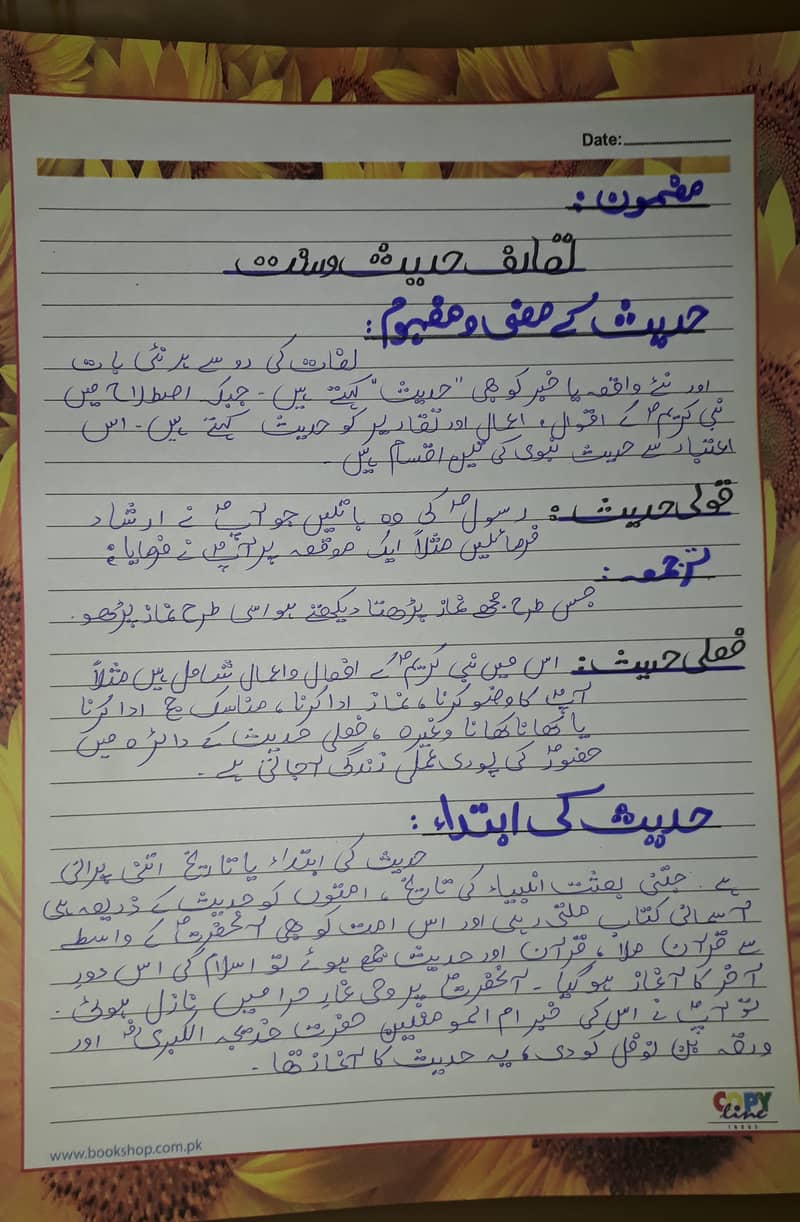 Date:
مضمون:
تعارف حدیث وسنت
حدیث کے معنی و مفہوم:
لغات کی رو سے ہر نئی بات
اور نئے واقعہ یا خبر کو بھی "حدیث" کہتے ہیں ۔ جبکہ اصطلاح میں
نبی کریمؐ کے اقوال، اعمال اور تقاریر کو حدیث کہتے ہیں ۔ اس
اعتبار سے حدیث نبوی کی تین اقسام ہیں ۔
قولی حدیث: رسولؐ کی وہ باتیں جو آپؐ نے ارشاد
فرمائیں مثلاً ایک موقعہ پر آپؐ نے فرمایا:
ترجمہ:
جس طرح مجھے نماز پڑھتا دیکھتے ہو اسی طرح نماز پڑھو.
فعلی حدیث: اس میں نبی کریمؐ کے افعال و اعمال شامل ہیں مثلاً
آپؐ کا وضو کرنا، نماز ادا کرنا، مناسک حج ادا کرنا
یا کھانا کھانا وغیرہ، فعلی حدیث کے دائرہ میں
حضورؐ کی پوری عملی زندگی آجاتی ہے ۔
حدیث کی ابتداء:
حدیث کی ابتداء یا تاریخ اتنی پرانی
ہے . جتنی بعثت انبیاء کی تاریخ، امتوں کو حدیث کے ذریعہ ہی
آسمانی کتاب ملتی رہی اور اس امت کو بھی آنحضرتؐ کے واسطے
سے قرآن ملا، قرآن اور حدیث جمع ہوئے تو اسلام کی اس دور
آخر کا آغاز ہو گیا ۔ آنحضرتؐ پر وحی غار حرا میں نازل ہوئی .
تو آپؐ نے اس کی خبر ام المومنین حضرت خدیجہ الکبریؓ اور
ورقہ بن نوفل کو دی، یہ حدیث کا آغاز تھا ۔
COPY
line
www.bookshop.com.pk